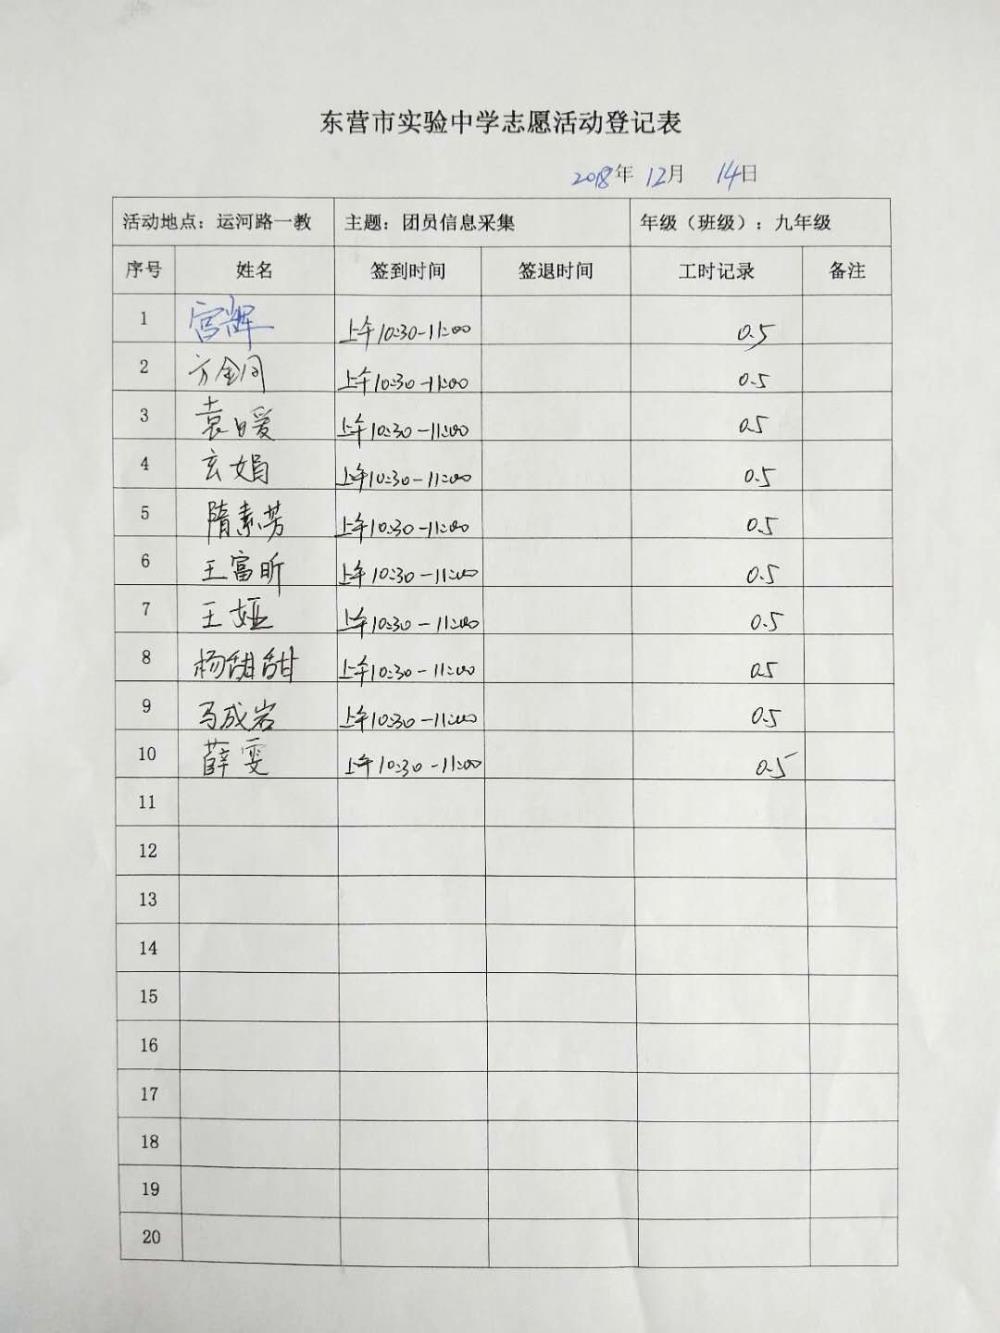 东营市实验中学志愿活动登记表
2018年 12月 14日
活动地点：运河路一教 主题：团员信息采集 年级（班级）：九年级
序号 姓名 签到时间 签退时间 工时记录 备注
1 宫辉 上午10:30-11:00 0.5
2 方金同 上午10:30-11:00 0.5
3 袁日暖 上午10:30-11:00 0.5
4 玄娟 上午10:30-11:00 0.5
5 隋素芳 上午10:30-11:00 0.5
6 王富昕 上午10:30-11:00 0.5
7 王娅 上午10:30-11:00 0.5
8 杨甜甜 上午10:30-11:00 0.5
9 马成岩 上午10:30-11:00 0.5
10 薛雯 上午10:30-11:00 0.5
11
12
13
14
15
16
17
18
19
20